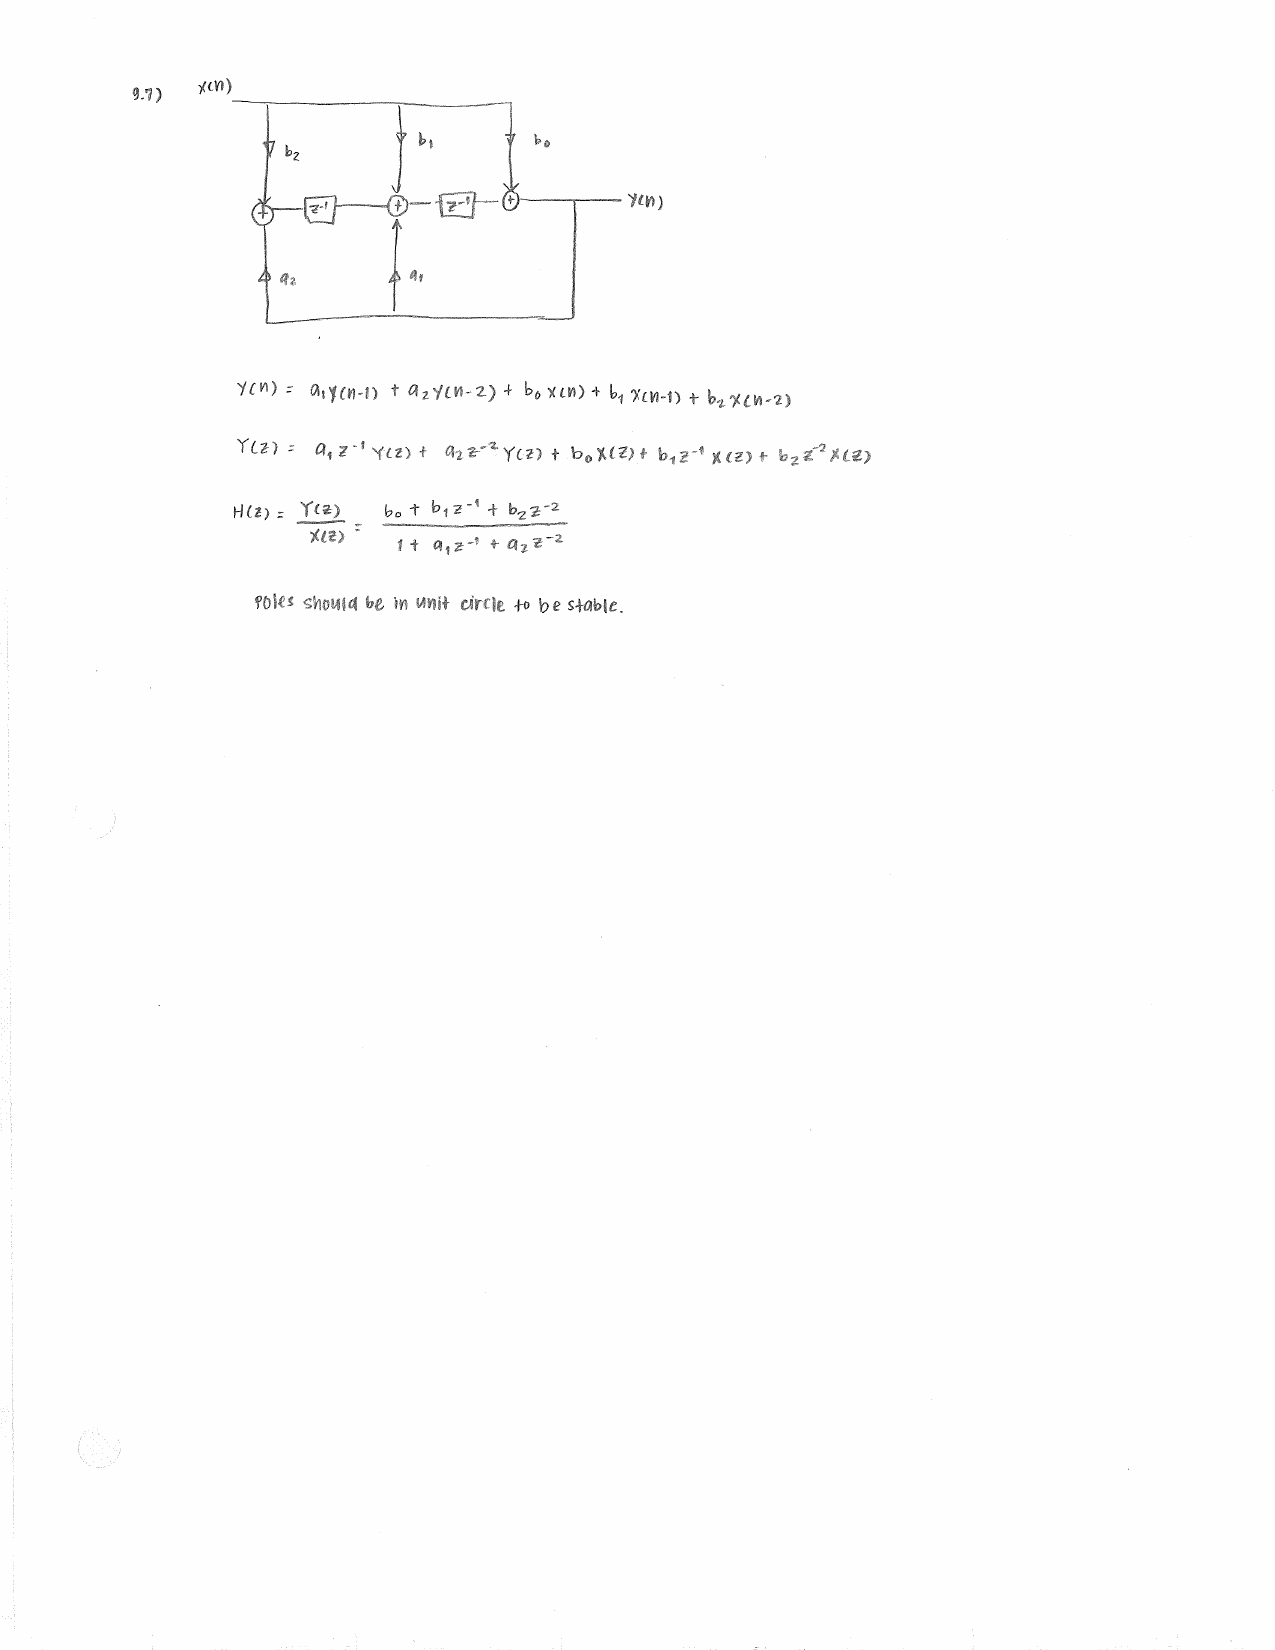 9.7) x(n)
b₂ b₁ b₀
+ z⁻¹ + z⁻¹ + y(n)
a₂ a₁
y(n) = a₁y(n-1) + a₂y(n-2) + b₀x(n) + b₁x(n-1) + b₂x(n-2)
Y(z) = a₁z⁻¹Y(z) + a₂z⁻²Y(z) + b₀X(z) + b₁z⁻¹X(z) + b₂z⁻²X(z)
H(z) = Y(z)/X(z) = b₀ + b₁z⁻¹ + b₂z⁻² / 1 + a₁z⁻¹ + a₂z⁻²
Poles should be in unit circle to be stable.